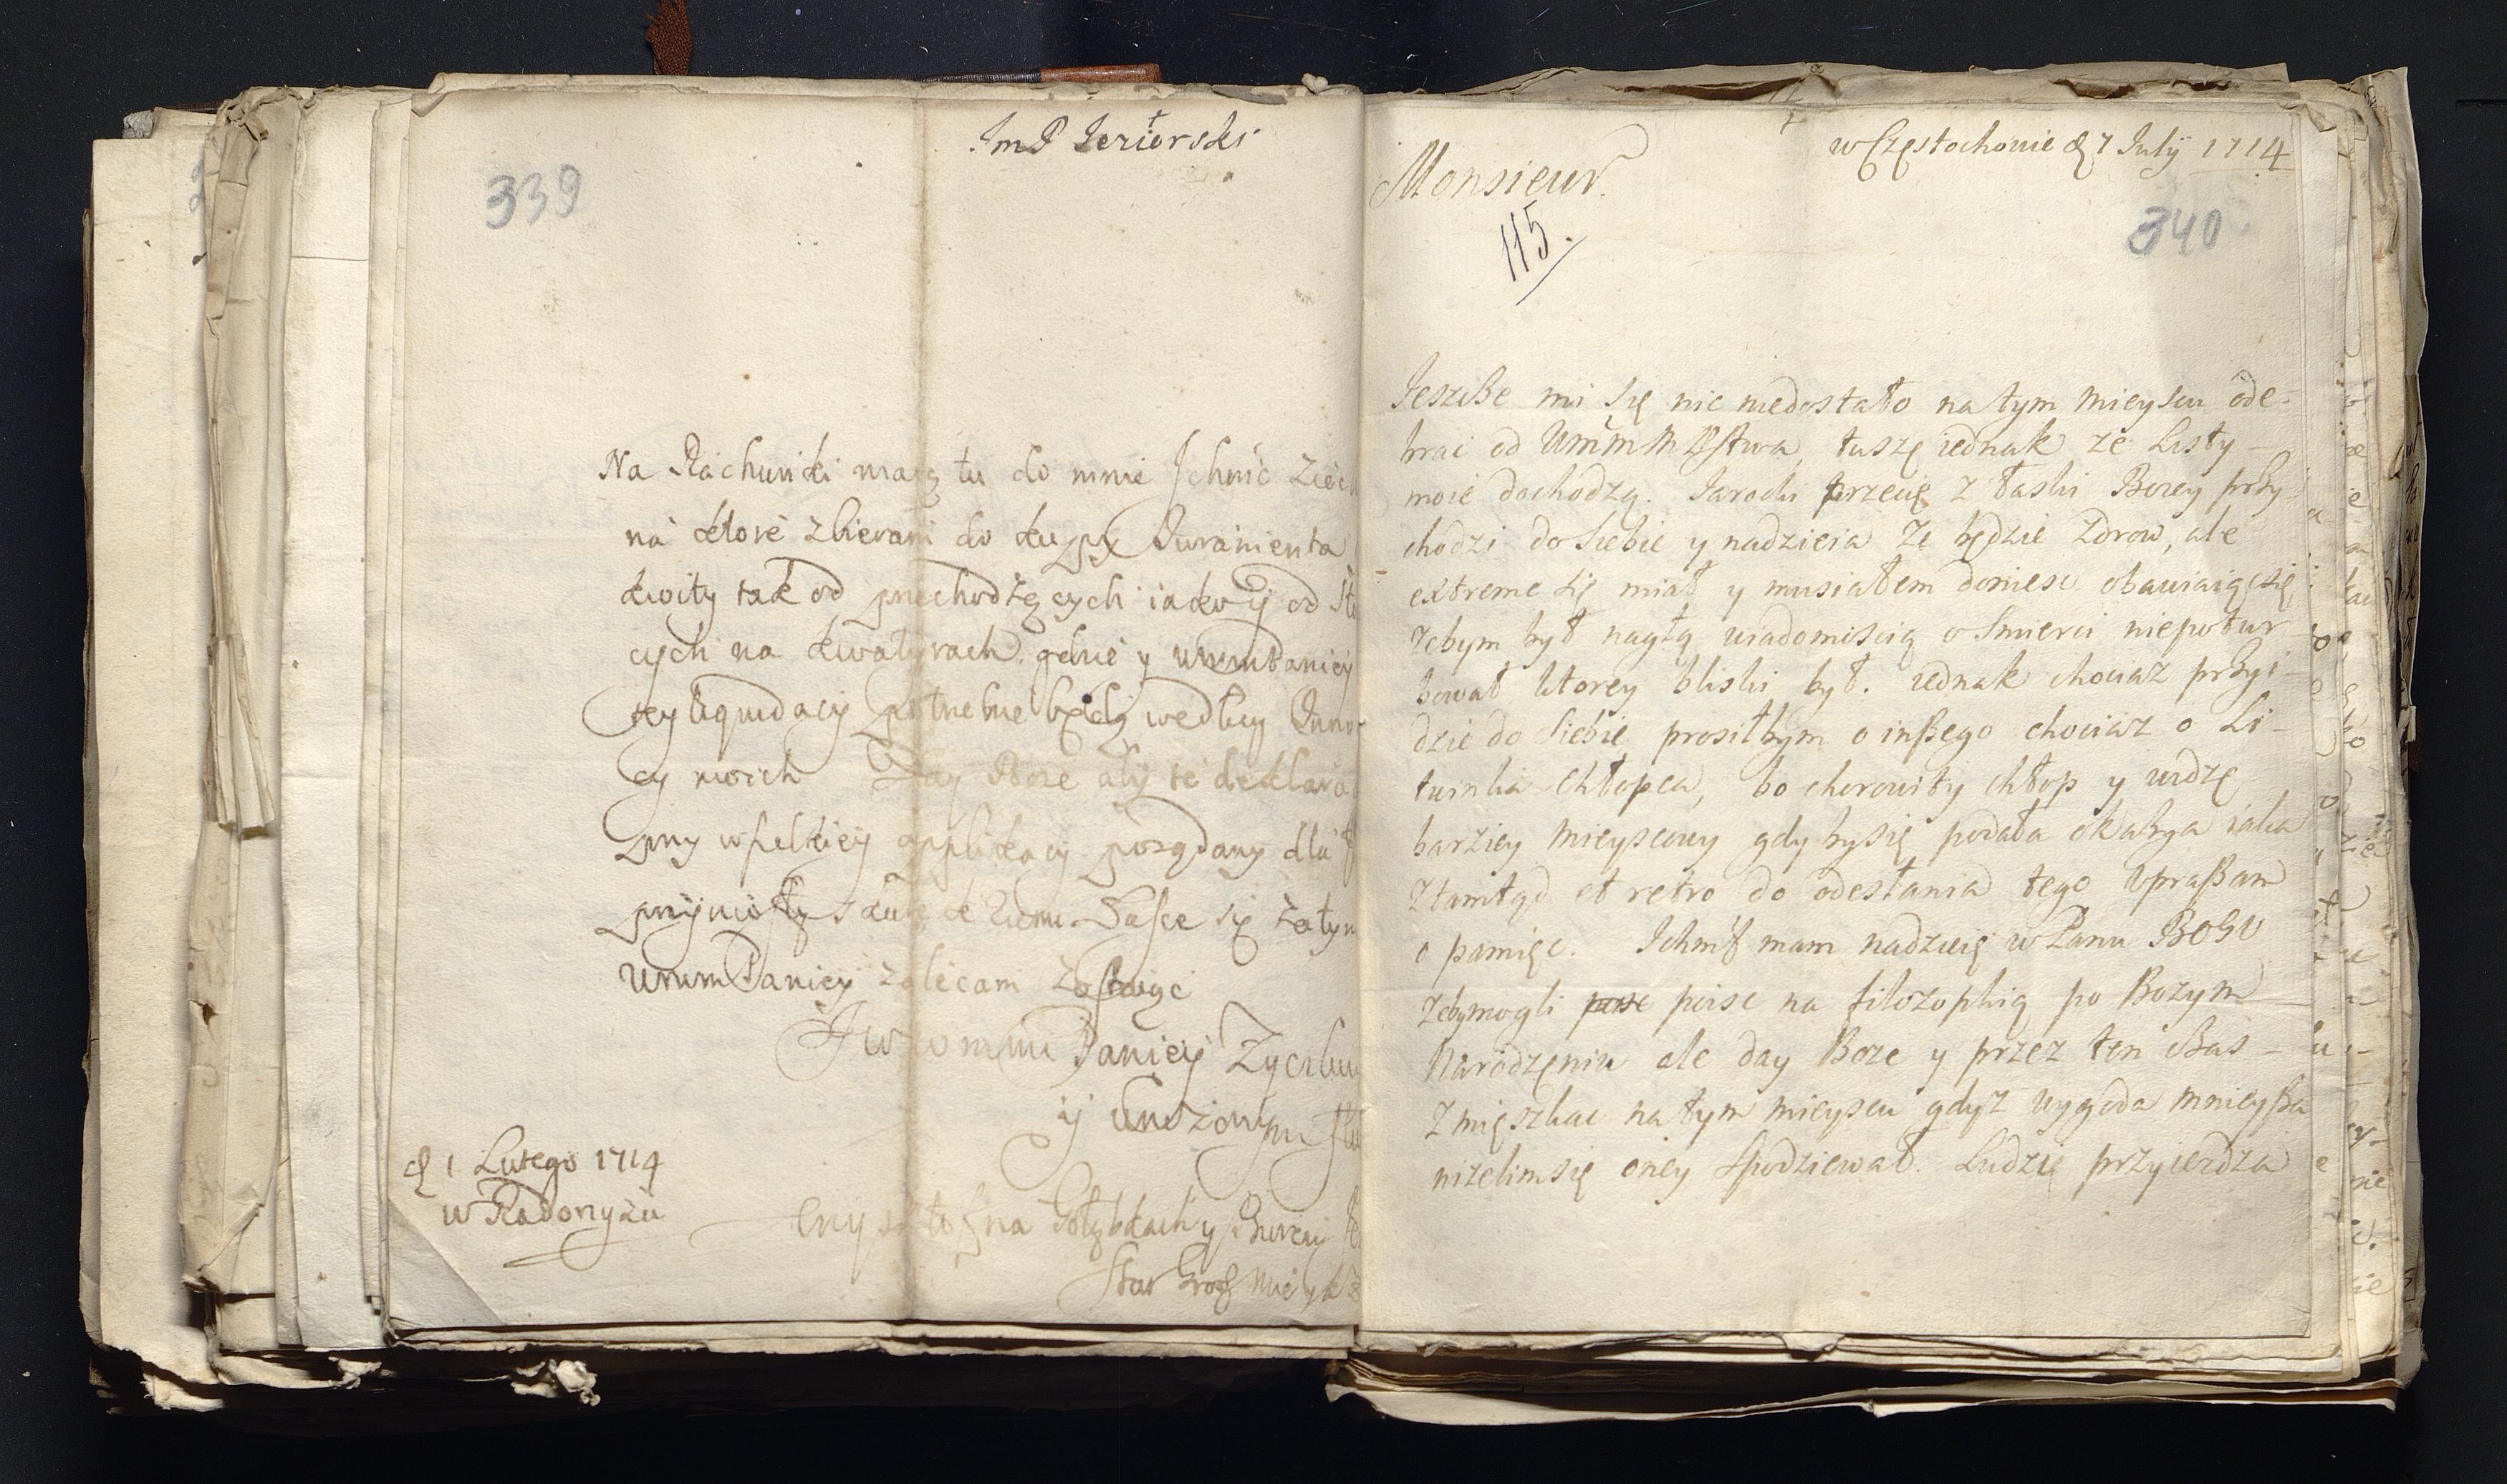 ImP Jezierski
339
Na Rachunki maią tu do mnie Ichmć
na ktore zbieram do kupy Juramenta
kwity tak od przechodzących iako ÿ od
cych na kwatyrach gdzie y WmmPaniey
tey liquidacÿ potrzebne będą według
cy moich Day Boże aby te deklara
pny wszelkiey applikacy pożądany dla
przyniosły skutek Łasce się zatym
WmmPaniey zalecam zostaiąc
Paniey Zyczliw
ÿ Unizonym
d 1 Lutego 1714
w Radoryżu
na Gołąbkach y
Star
w Częstochowie d 7 Julÿ 1714
Monsieur
115.
340
Jeszcße mi się nic niedostało na tym mieyscu ode-
brac od tuszę iednak ze Listy
moie dochodzą. Jarocki przecię z łaski Bozey przy
chodzi do siebie y nadzieia ze będzie zdrow, ale
extreme się miał y musiałem doniesc obawiaiąc się
zebym był nagłą wiadomiscią o smierci niepotur
bował ktorey bliski był. iednak chociaz przyi
dzie do siebie prosiłbym o inßego chociaz o Li-
twinka chłopca, bo chorowity chłop y widzę
barziey mieyscowy gdyby się podała okazya iaka
ztamtąd et retro do odesłania tego upraßam
o pamięc. Ichmß mam nadzieię w Panu BOGU
zebymogli poisc na filozophią po Bozym
Narodzęniu ale day Boze y przez ten cßas
zmięszkac na tym mieyscu gdyz wygoda mnieyßa
nizelim się oney spodziewał. Ludzie przyiezdza